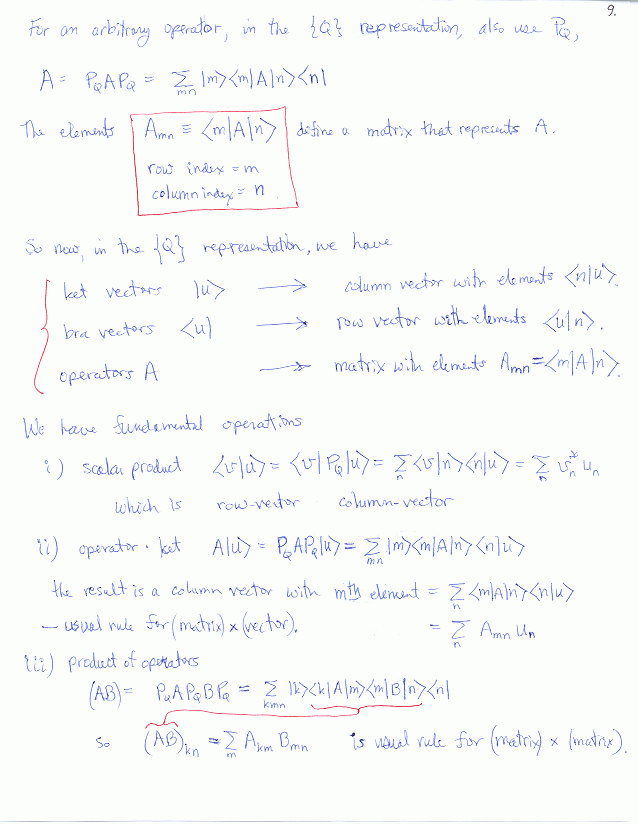 9.
For an arbitrary operator, in the {Q} representation, also use P_Q,
A = P_Q A P_Q = Σ_mn |m><m|A|n><n|
The elements A_mn ≡ <m|A|n> define a matrix that represents A.
row index = m
column index = n
So now, in the {Q} representation, we have
ket vectors |u> → column vector with elements <n|u>.
bra vectors <u| → row vector with elements <u|n>.
operators A → matrix with elements A_mn = <m|A|n>.
We have fundamental operations
i) scalar product <v|u> = <v|P_Q|u> = Σ_n <v|n><n|u> = Σ_n v_n* u_n
which is row-vector column-vector
ii) operator · ket A|u> = P_Q A P_Q|u> = Σ_mn |m><m|A|n><n|u>
the result is a column vector with mth element = Σ_n <m|A|n><n|u>
– usual rule for (matrix) x (vector). = Σ_n A_mn u_n
iii) product of operators
(AB) = P_Q A P_Q B P_Q = Σ_kmn |k><k|A|m><m|B|n><n|
so (AB)_kn = Σ_m A_km B_mn is usual rule for (matrix) x (matrix).